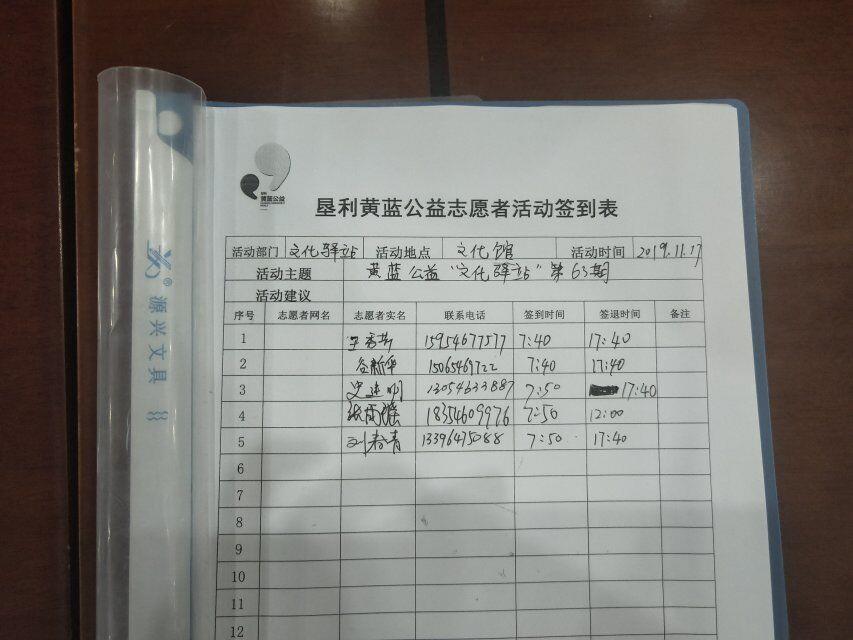 黄蓝公益
垦利黄蓝公益志愿者活动签到表
活动部门 文化驿站 活动地点 文化馆 活动时间 2019.11.17
活动主题 黄蓝公益“文化驿站”第63期
活动建议
序号 志愿者网名 志愿者实名 联系电话 签到时间 签退时间 备注
1 15954677577 7:40 17:40
2 谷新华 15065469722 7:40 17:40
3 史建明 13054633887 7:50 17:40
4 18354609976 7:50 12:00
5 刘春青 13396475088 7:50 17:40
6
7
8
9
10
11
12
源兴文具